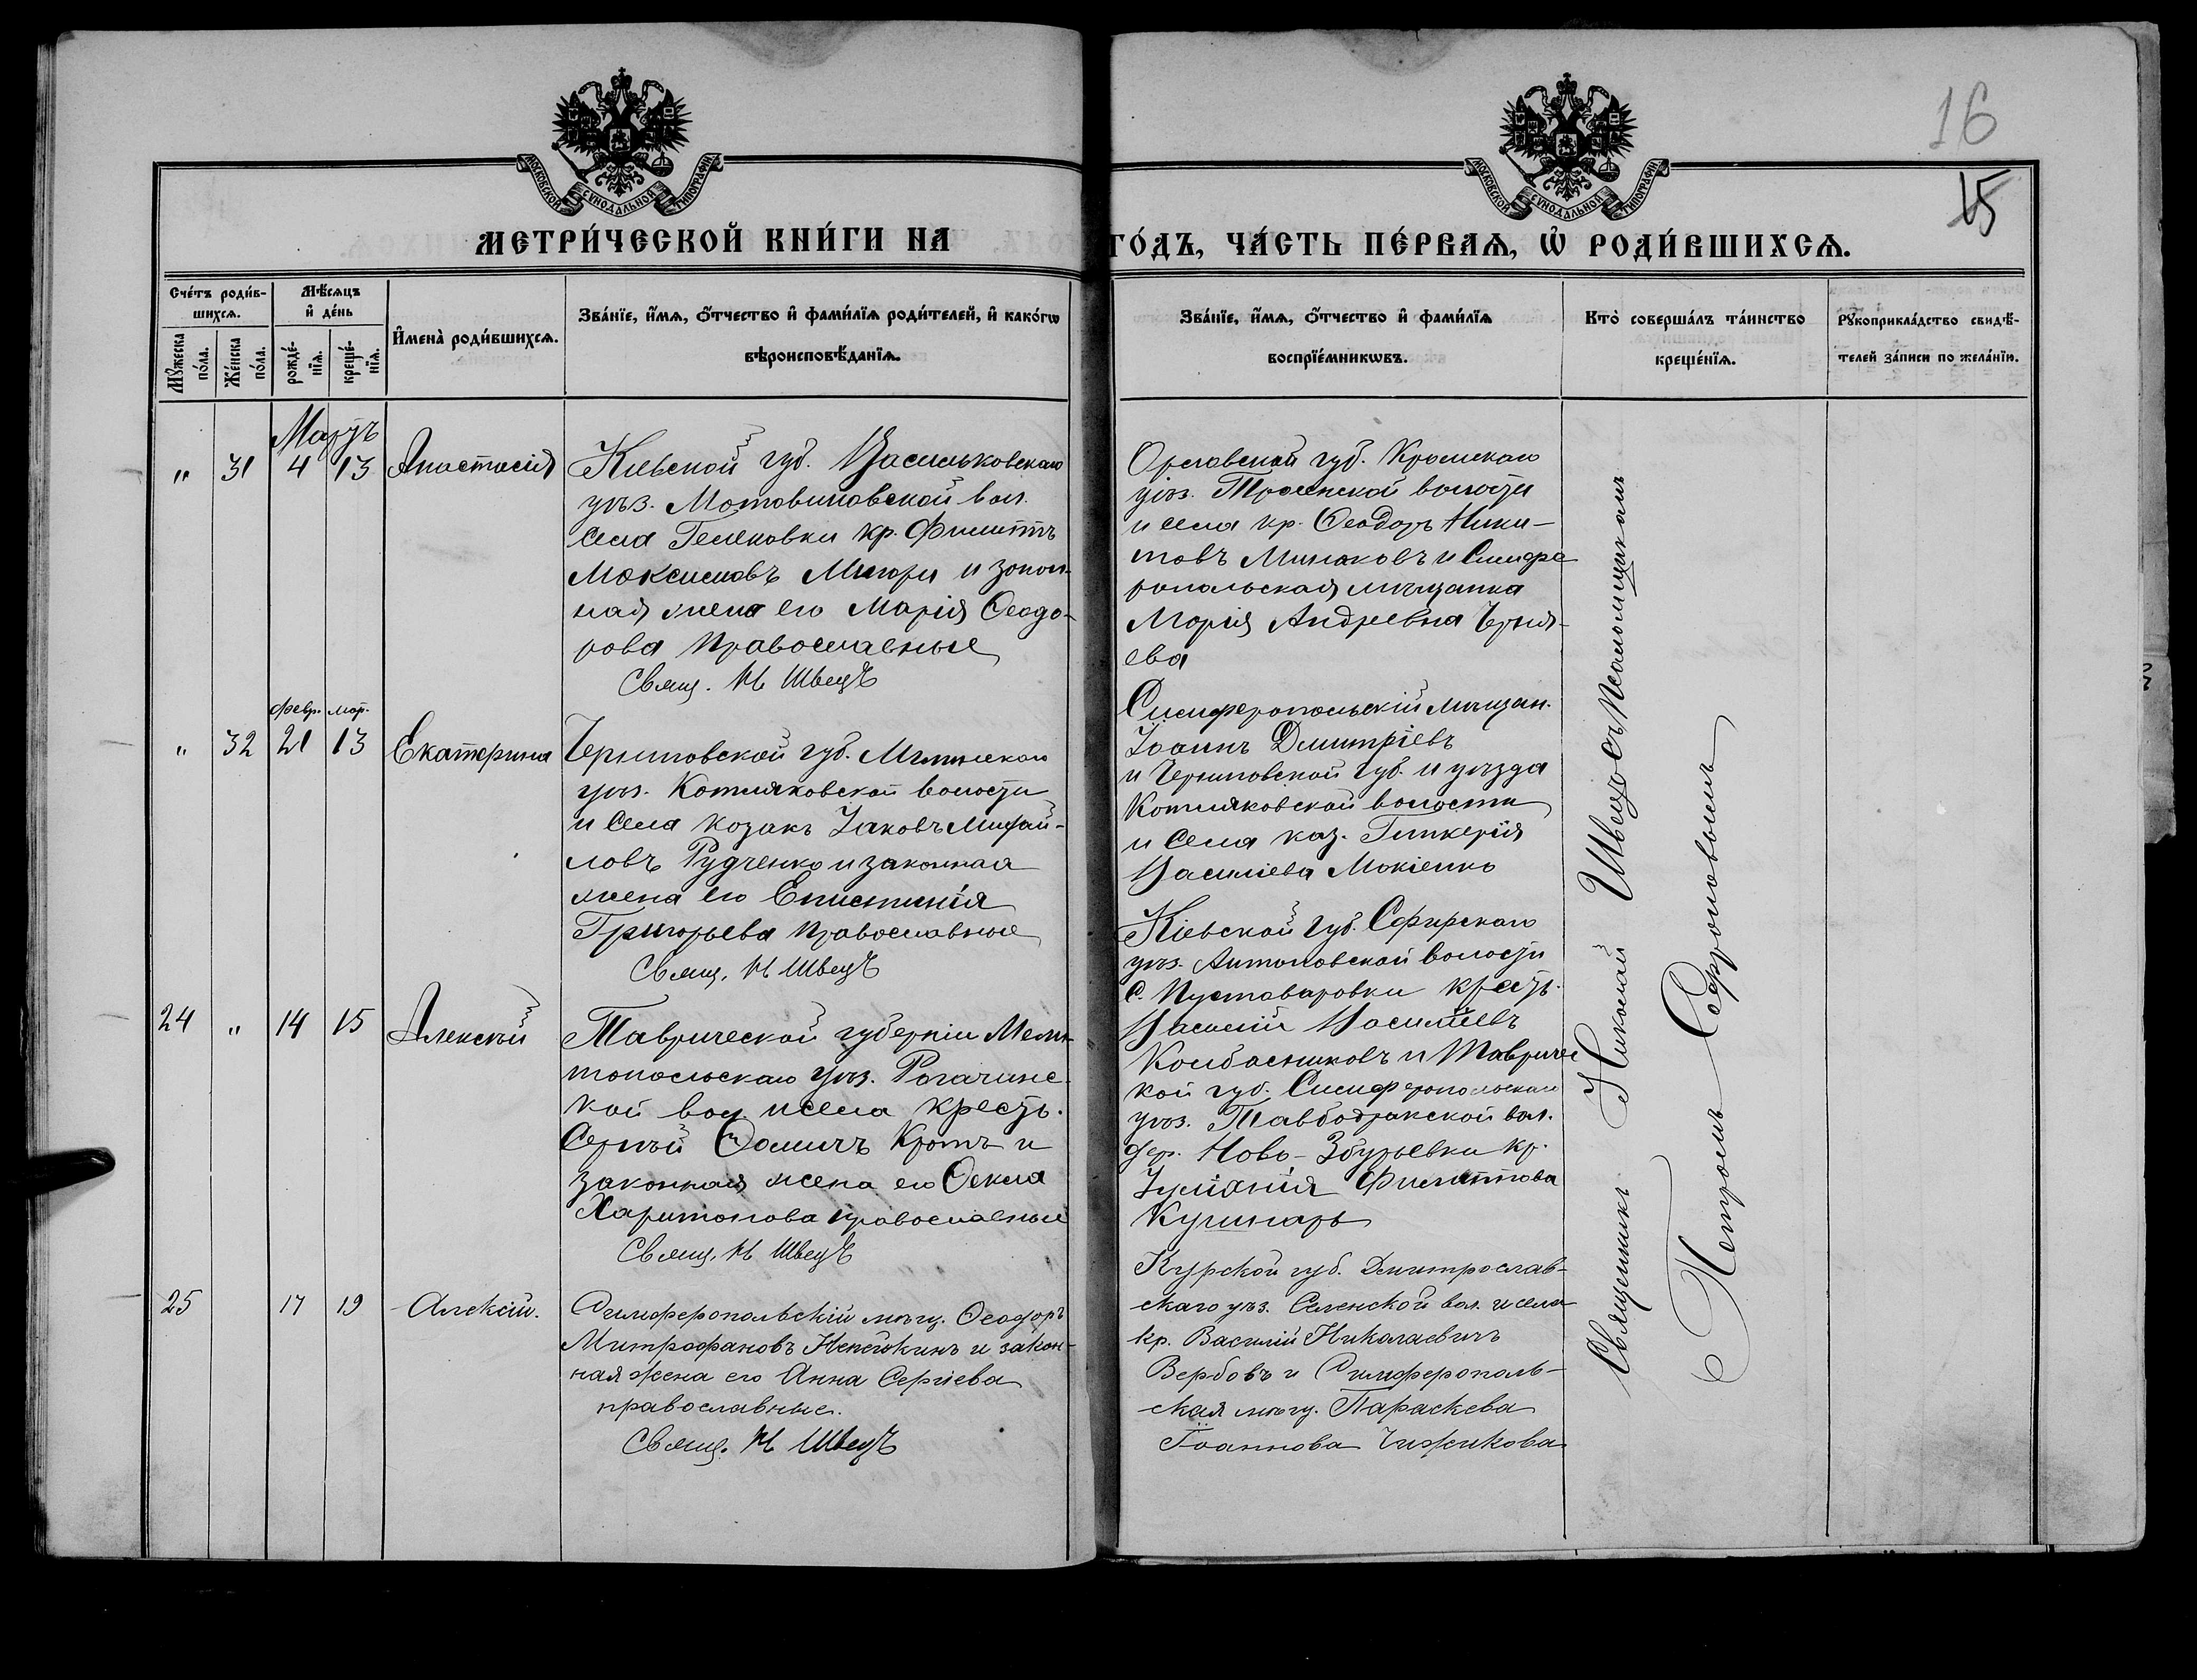 МОСКОВСКОЙ СѴНОДАЛЬНОЙ ТИПОГРАФІИ
МОСКОВСКОЙ СѴНОДАЛЬНОЙ ТИПОГРАФІИ
16
15
МЕТРИ́ЧЕСКОЙ КНИ́ГИ НА
ГО́ДЪ, ЧА́СТЬ ПЕ́РВАѦ, Ѡ҆ РОДИ́ВШИХСѦ.
Сче́тъ роди́в-
шихсѧ.
Мꙋ́жеска по́ла.
Же́нска по́ла.
Мѣ́сѧцъ
и҆ де́нь
рожде́-
нїѧ.
креще́-
нїѧ.
И҆мена̀ роди́вшихсѧ.
Зва́нїе, и҆́мѧ, ѻ҆́тчество и҆ фами́лїѧ роди́телей, и҆ како́гѡ
вѣроисповѣ́данїѧ.
Зва́нїе, и҆́мѧ, ѻ҆́тчество и҆ фами́лїѧ
воспрїе́мникѡвъ.
Кто̀ соверша́лъ та́инство
креще́нїѧ.
Рꙋкоприкла́дство свидѣ́-
телей за́писи по жела́нїю.
Мартъ
" 31 4 13 Анастасія
Кіевской губ. Васильковскаго
уѣз. Мотовиловской вол.
села Гелековки кр. Филиппъ
Максимовъ и закон-
ная жена его Марія Ѳеодо-
рова православные
Свящ. Н Швецъ
Орловской губ. Кромскаго
уѣз. волости
и села кр. Ѳеодоръ Ники-
товъ Минаковъ и Симфе
ропольская мѣщанка
Марія Андреевна Черня-
ева
февр. мар.
" 32 21 13 Екатерина
Черниговской губ. Мглинскаго
уѣз. Котляковской волости
и села козакъ Іаковъ Михай-
ловъ Рудченко и законная
жена его Епистимія
Григорьева православные
Свящ. Н Швецъ
Симферопольскій мѣщан.
Іоаннъ Димитріевъ
и Черниговской губ. и уѣзда
Котляковской волости
и села каз. Гликерія
Васильева Мокіенко
24 " 14 15 Алексѣй
Таврической губерніи Мели-
топольскаго уѣз. Рогачинс-
кой вол. и села крестъ.
Сергѣй Ѳомичъ Кротъ и
законная жена его Ѳекла
Харитонова православные
Свящ. Н Швецъ
Кіевской губ. Сквирскаго
уѣз. Антоновской волости
с. Пустоваровки крестъ.
Василій Василіевъ
Колбасниковъ и Тавричес
кой губ. Симферопольскаго
уѣз. Тавбодракской вол.
дер. Ново-Збурьевки кр.
Іуліанія Филиппова
Кушнарь
25 17 19 Алексій.
Симферопольскій мѣщ. Ѳеодоръ
Митрофановъ и закон-
ная жена его Анна Сергіева
православные.
Свящ. Н Швецъ
Курской губ. Дмитрослав-
скаго уѣз. вол. и села
кр. Василій Николаевичъ
Вербовъ и Симферополь-
ская мѣщ. Параскева
Іоаннова Чижикова
Священникъ Николай Швецъ съ Псаломщикомъ
Петромъ Софроновымъ